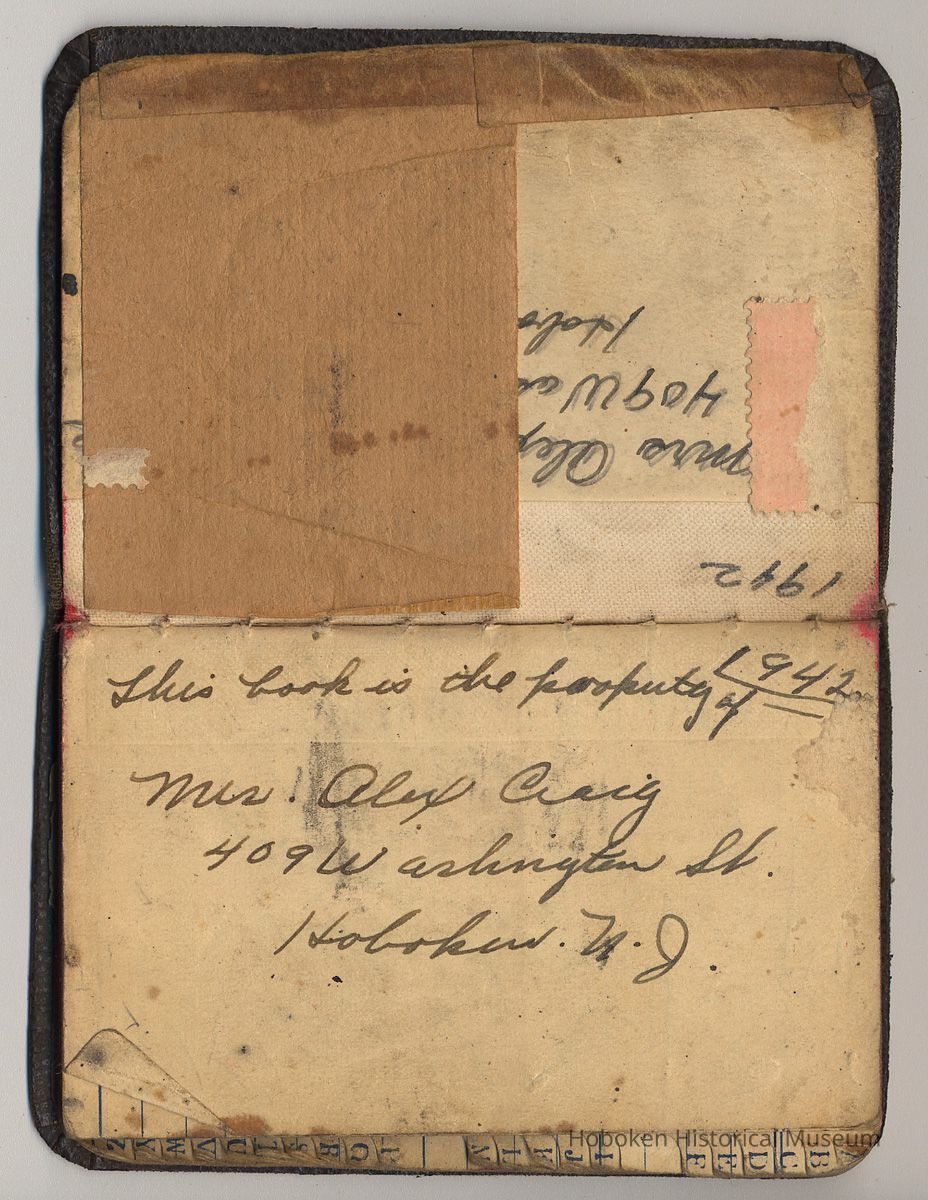 Mrs Alex
409 Wa
Hobo
1942
1942
This book is the property of
Mrs. Alex Craig
409 Washington St.
Hoboken. N. J.
Hoboken Historical Museum